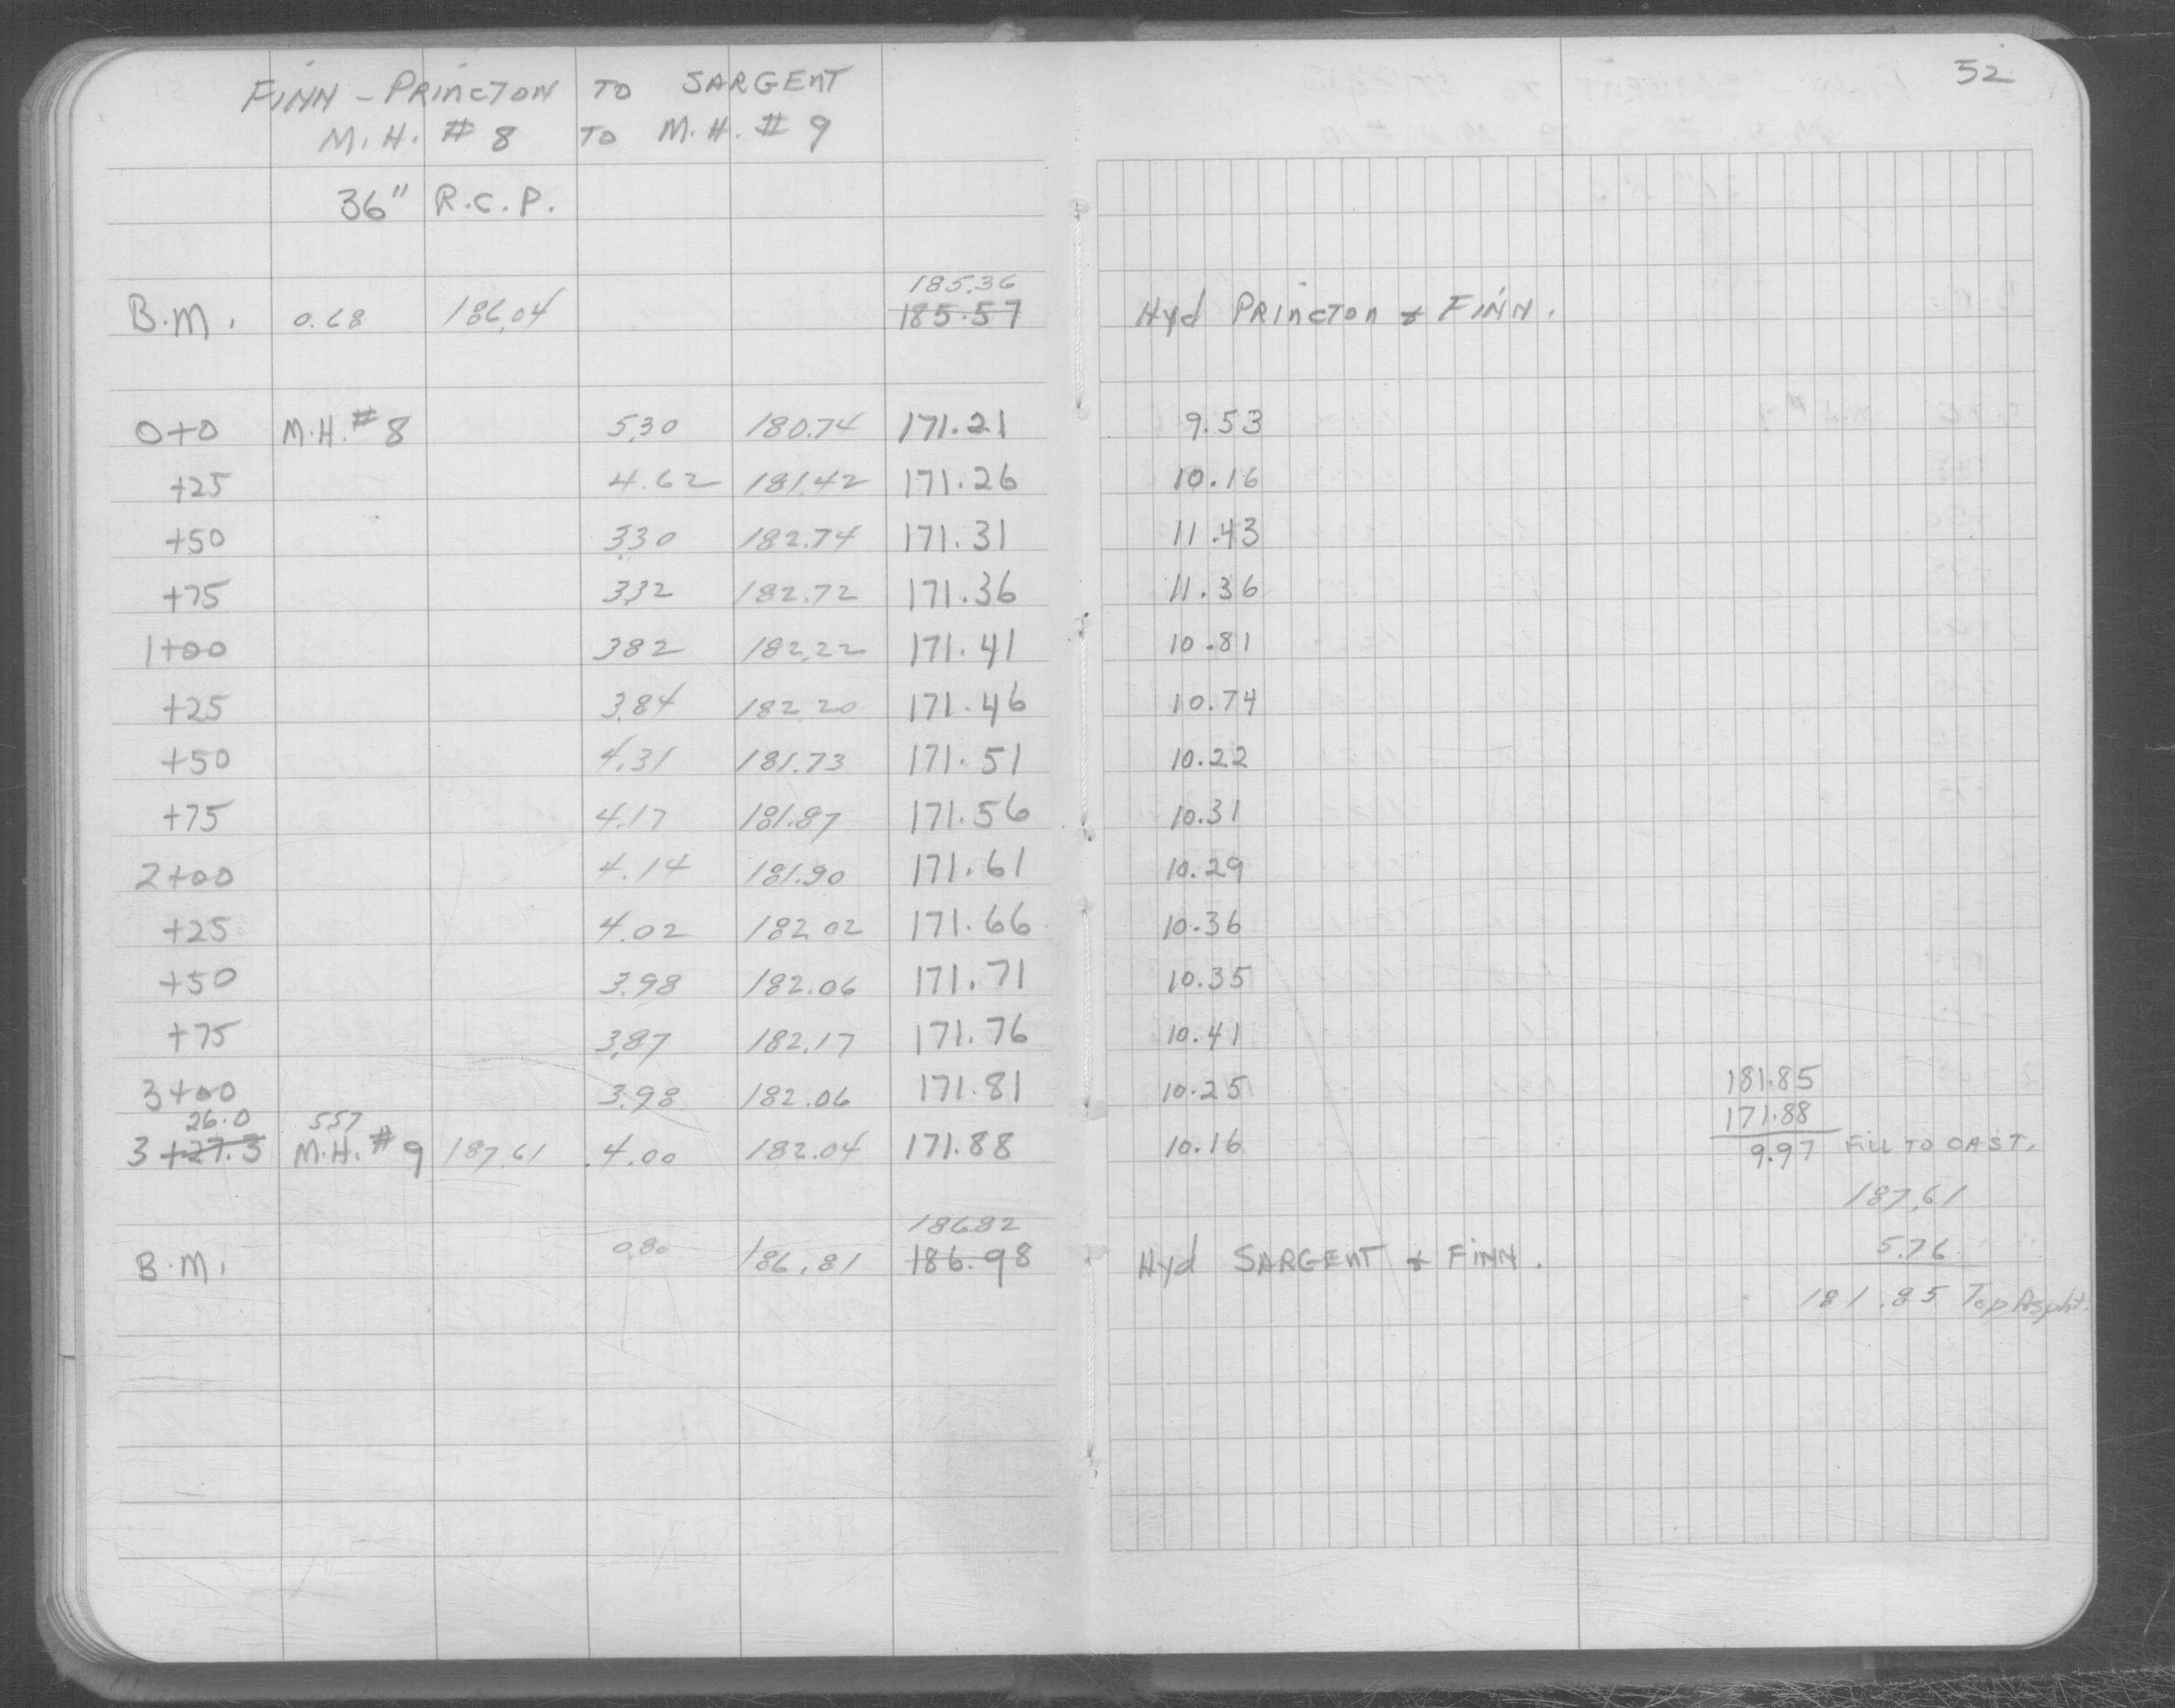 52
FINN - PRINCTON TO SARGENT
M.H. # 8 TO M.H. # 9
36" R.C.P.
185.36
B.M. 0.68 186.04 185.57 Hyd PRINCTON & FINN.
0+0 M.H. # 8 5.30 180.74 171.21 9.53
+25 4.62 181.42 171.26 10.16
+50 3.30 182.74 171.31 11.43
+75 3.32 182.72 171.36 11.36
1+00 3.82 182.22 171.41 10.81
+25 3.84 182.20 171.46 10.74
+50 4.31 181.73 171.51 10.22
+75 4.17 181.87 171.56 10.31
2+00 4.14 181.90 171.61 10.29
+25 4.02 182.02 171.66 10.36
+50 3.98 182.06 171.71 10.35
+75 3.87 182.17 171.76 10.41
3+00 3.98 182.06 171.81 10.25 181.85
26.0 5.57 171.88
3+27.3 M.H. # 9 187.61 4.00 182.04 171.88 10.16 9.97 FILL TO CAST.
187.61
186.82
B.M. 0.80 186.81 186.98 Hyd SARGENT & FINN. 5.76
181.85 Top Aspht.